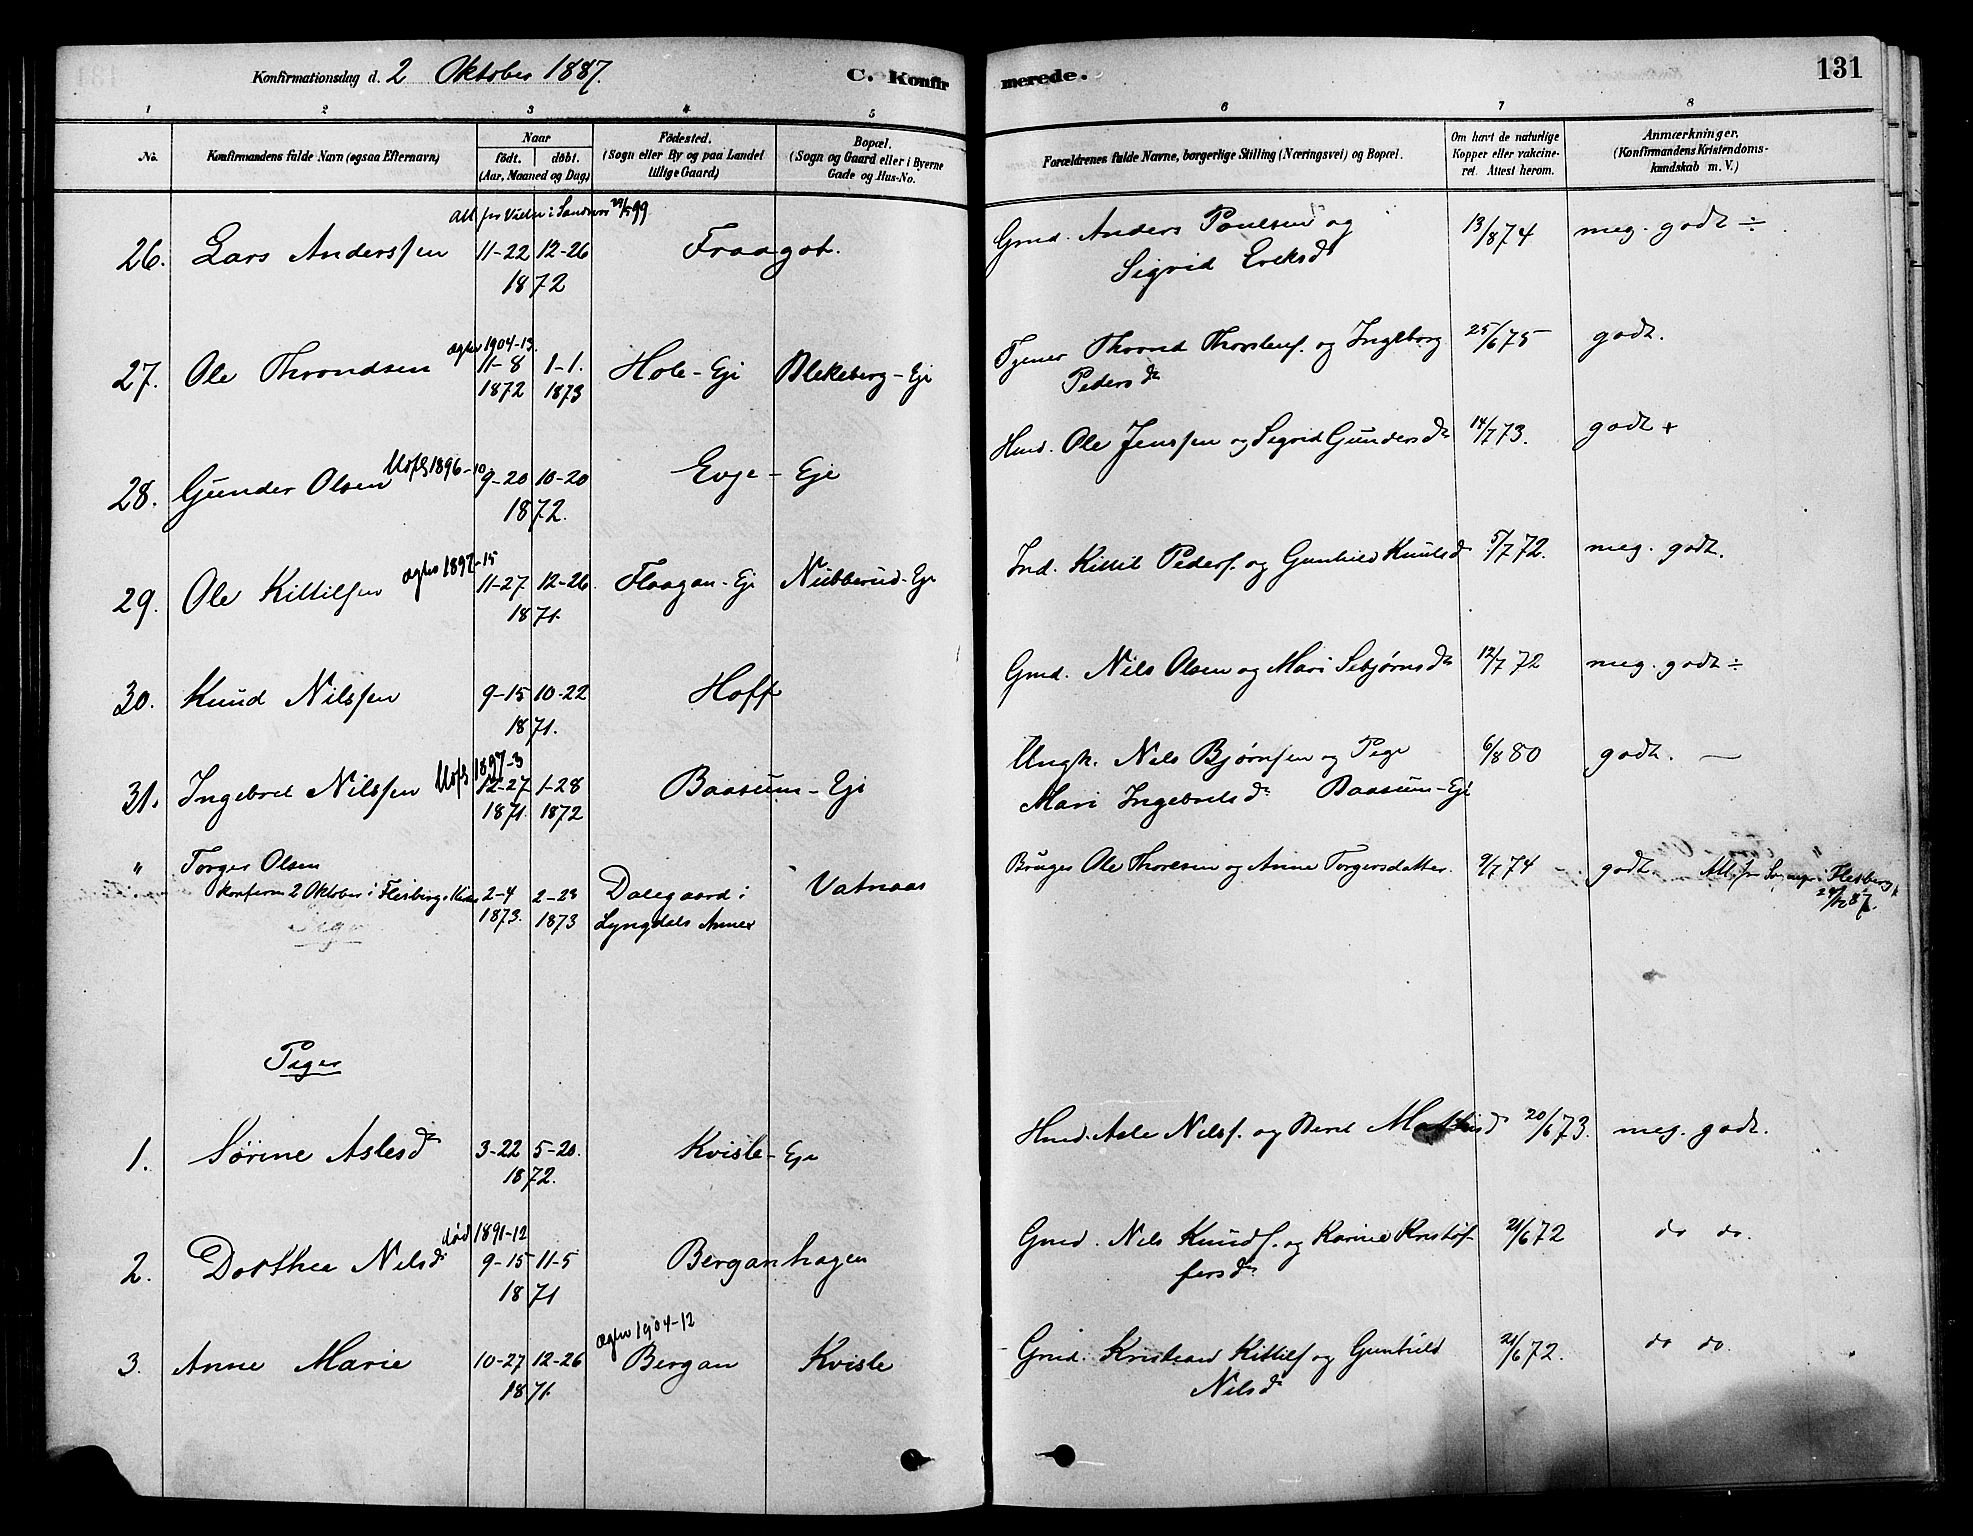 Konfirmationsdag d. 2 Oktober 1887.
C. Konfirmerede.
131
1 2 3 4 5 6 7 8
No.
Konfirmandens fulde Navn (ogsaa Efternavn)
Naar
født. døbt.
(Aar, Maaned og Dag)
Fødested.
(Sogn eller By og paa Landet
tillige Gaard)
Bopæl.
(Sogn og Gaard eller i Byerne
Gade og Hus-No.
Forældrenes fulde Navne, borgerlige Stilling (Næringsvei) og Bopæl.
Om havt de naturlige
Kopper eller vakcine-
ret. Attest herom.
Anmærkninger.
(Konfirmandens Kristendoms-
kundskab m. V.)
Att for 99
26. Lars Anderssen 11-22 12-26 Fraagot. Gmd. Anders Paulsen og 13/8 74 meg. godt ÷
1872 Sigrid Ereksd
ægtev 1904-13.
27. Ole Throndsen 11-8 1-1. Hole-Eje Blekeberg-Eje Tjener Thrond Thorstens. og Ingeborg 25/6 75 godt.
1872 1873 Pedersdr
Udfl 1896-10
28. Gunder Olsen 9-20 10-20 Evje-Eje Hmd. Ole Jenssen og Sigrid Gundersdr 14/7 73. godt +
1872.
ægtev 1897-15
29. Ole Kittilsen 11-27 12-26. Flaagan-Eje Nubberud-Eje Ind. Kittil Peders. og Gunhild Knutsd 5/7 72. meg. godt.
1871.
30. Knud Nilssen 9-15 10-22 Hoff Gmd. Nils Olsen og Mari Sebjørnsdr 12/7 72 meg. godt ÷
1871.
Udfl 1897-3
31. Ingebret Nilssen 12-27 1-28 Baasum-Eje Ungk. Nils Bjørnsen og Pige 6/8 80 godt. —
1871. 1872 Mari Ingebretsdr Baasum-Eje
" Torger Olsen Bruger Ole Thoresen og Anne Torgersdatter 9/7 74 godt Flesberg
konfirm 2 Oktober i Flesberg Kirke 2-4 2-23 Dalegaard i Vatnaas 87.
1873. 1873 Lyngdals Annex
Piger
1. Sørine Aslesdr 3-22 5-20. Kvisle-Eje Hmd. Asle Nilss. og Berit 20/6 73. meg. godt.
1872.
død 1891-12
2. Dorthea Nilsd 9-15 11-5 Berganhagen Gmd. Nils Knuds. og Karine Kristof- 21/6 72 do do.
1871 fersdr
ægtev 1904-12
3. Anne Marie 10-27 12-26 Bergan Kvisle Gmd. Kristian Kittils og Gunhild 21/6 72. do do.
1871. Nilsdr